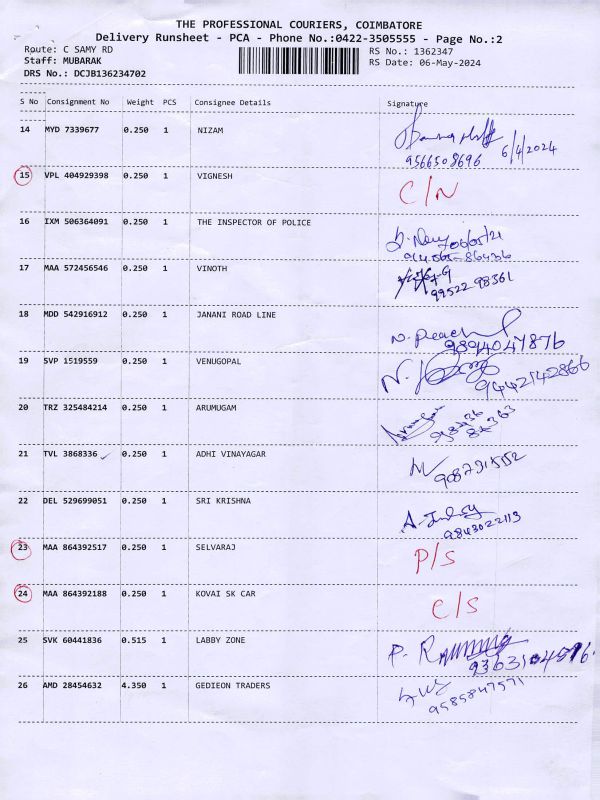 THE PROFESSIONAL COURIERS, COIMBATORE
Delivery Runsheet - PCA - Phone No.:0422-3505555 - Page No.:2
Route: C SAMY RD RS No.: 1362347
Staff: MUBARAK RS Date: 06-May-2024
DRS No.: DCJB136234702
S No Consignment No Weight PCS Consignee Details Signature
14 MYD 7339677 0.250 1 NIZAM
9566508696 6/4/2024
15 VPL 404929398 0.250 1 VIGNESH C/N
16 IXM 506364091 0.250 1 THE INSPECTOR OF POLICE
17 MAA 572456546 0.250 1 VINOTH
99522 98361
18 MDD 542916912 0.250 1 JANANI ROAD LINE
9894047876
19 SVP 1519559 0.250 1 VENUGOPAL
9442142866
20 TRZ 325484214 0.250 1 ARUMUGAM
21 TVL 3868336 0.250 1 ADHI VINAYAGAR
22 DEL 529699051 0.250 1 SRI KRISHNA
9843022113
23 MAA 864392517 0.250 1 SELVARAJ P/S
24 MAA 864392188 0.250 1 KOVAI SK CAR C/S
25 SVK 60441836 0.515 1 LABBY ZONE
26 AMD 28454632 4.350 1 GEDIEON TRADERS
9585847571